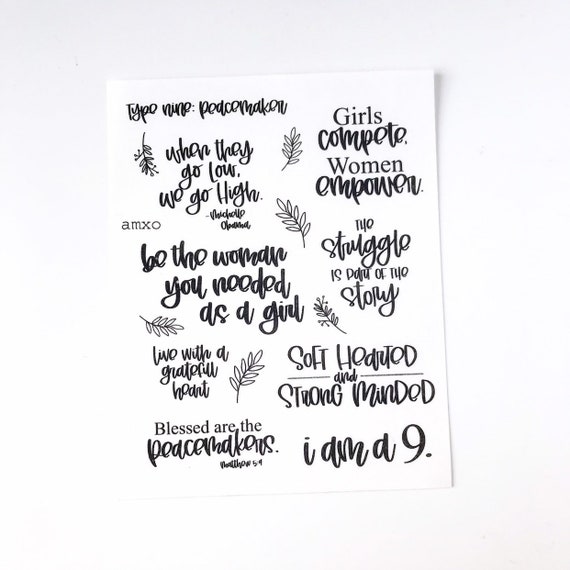 Type nine: peacemaker
when they
go low,
we go High.
-Michelle
Obama
Girls
compete,
Women
empower.
amxo
be the woman
you needed
as a girl
THE
struggle
is part of the
story
live with a
grateful
heart
Soft Hearted
and
Strong Minded
Blessed are the
peacemakers.
Matthew 5:9
i am a 9.